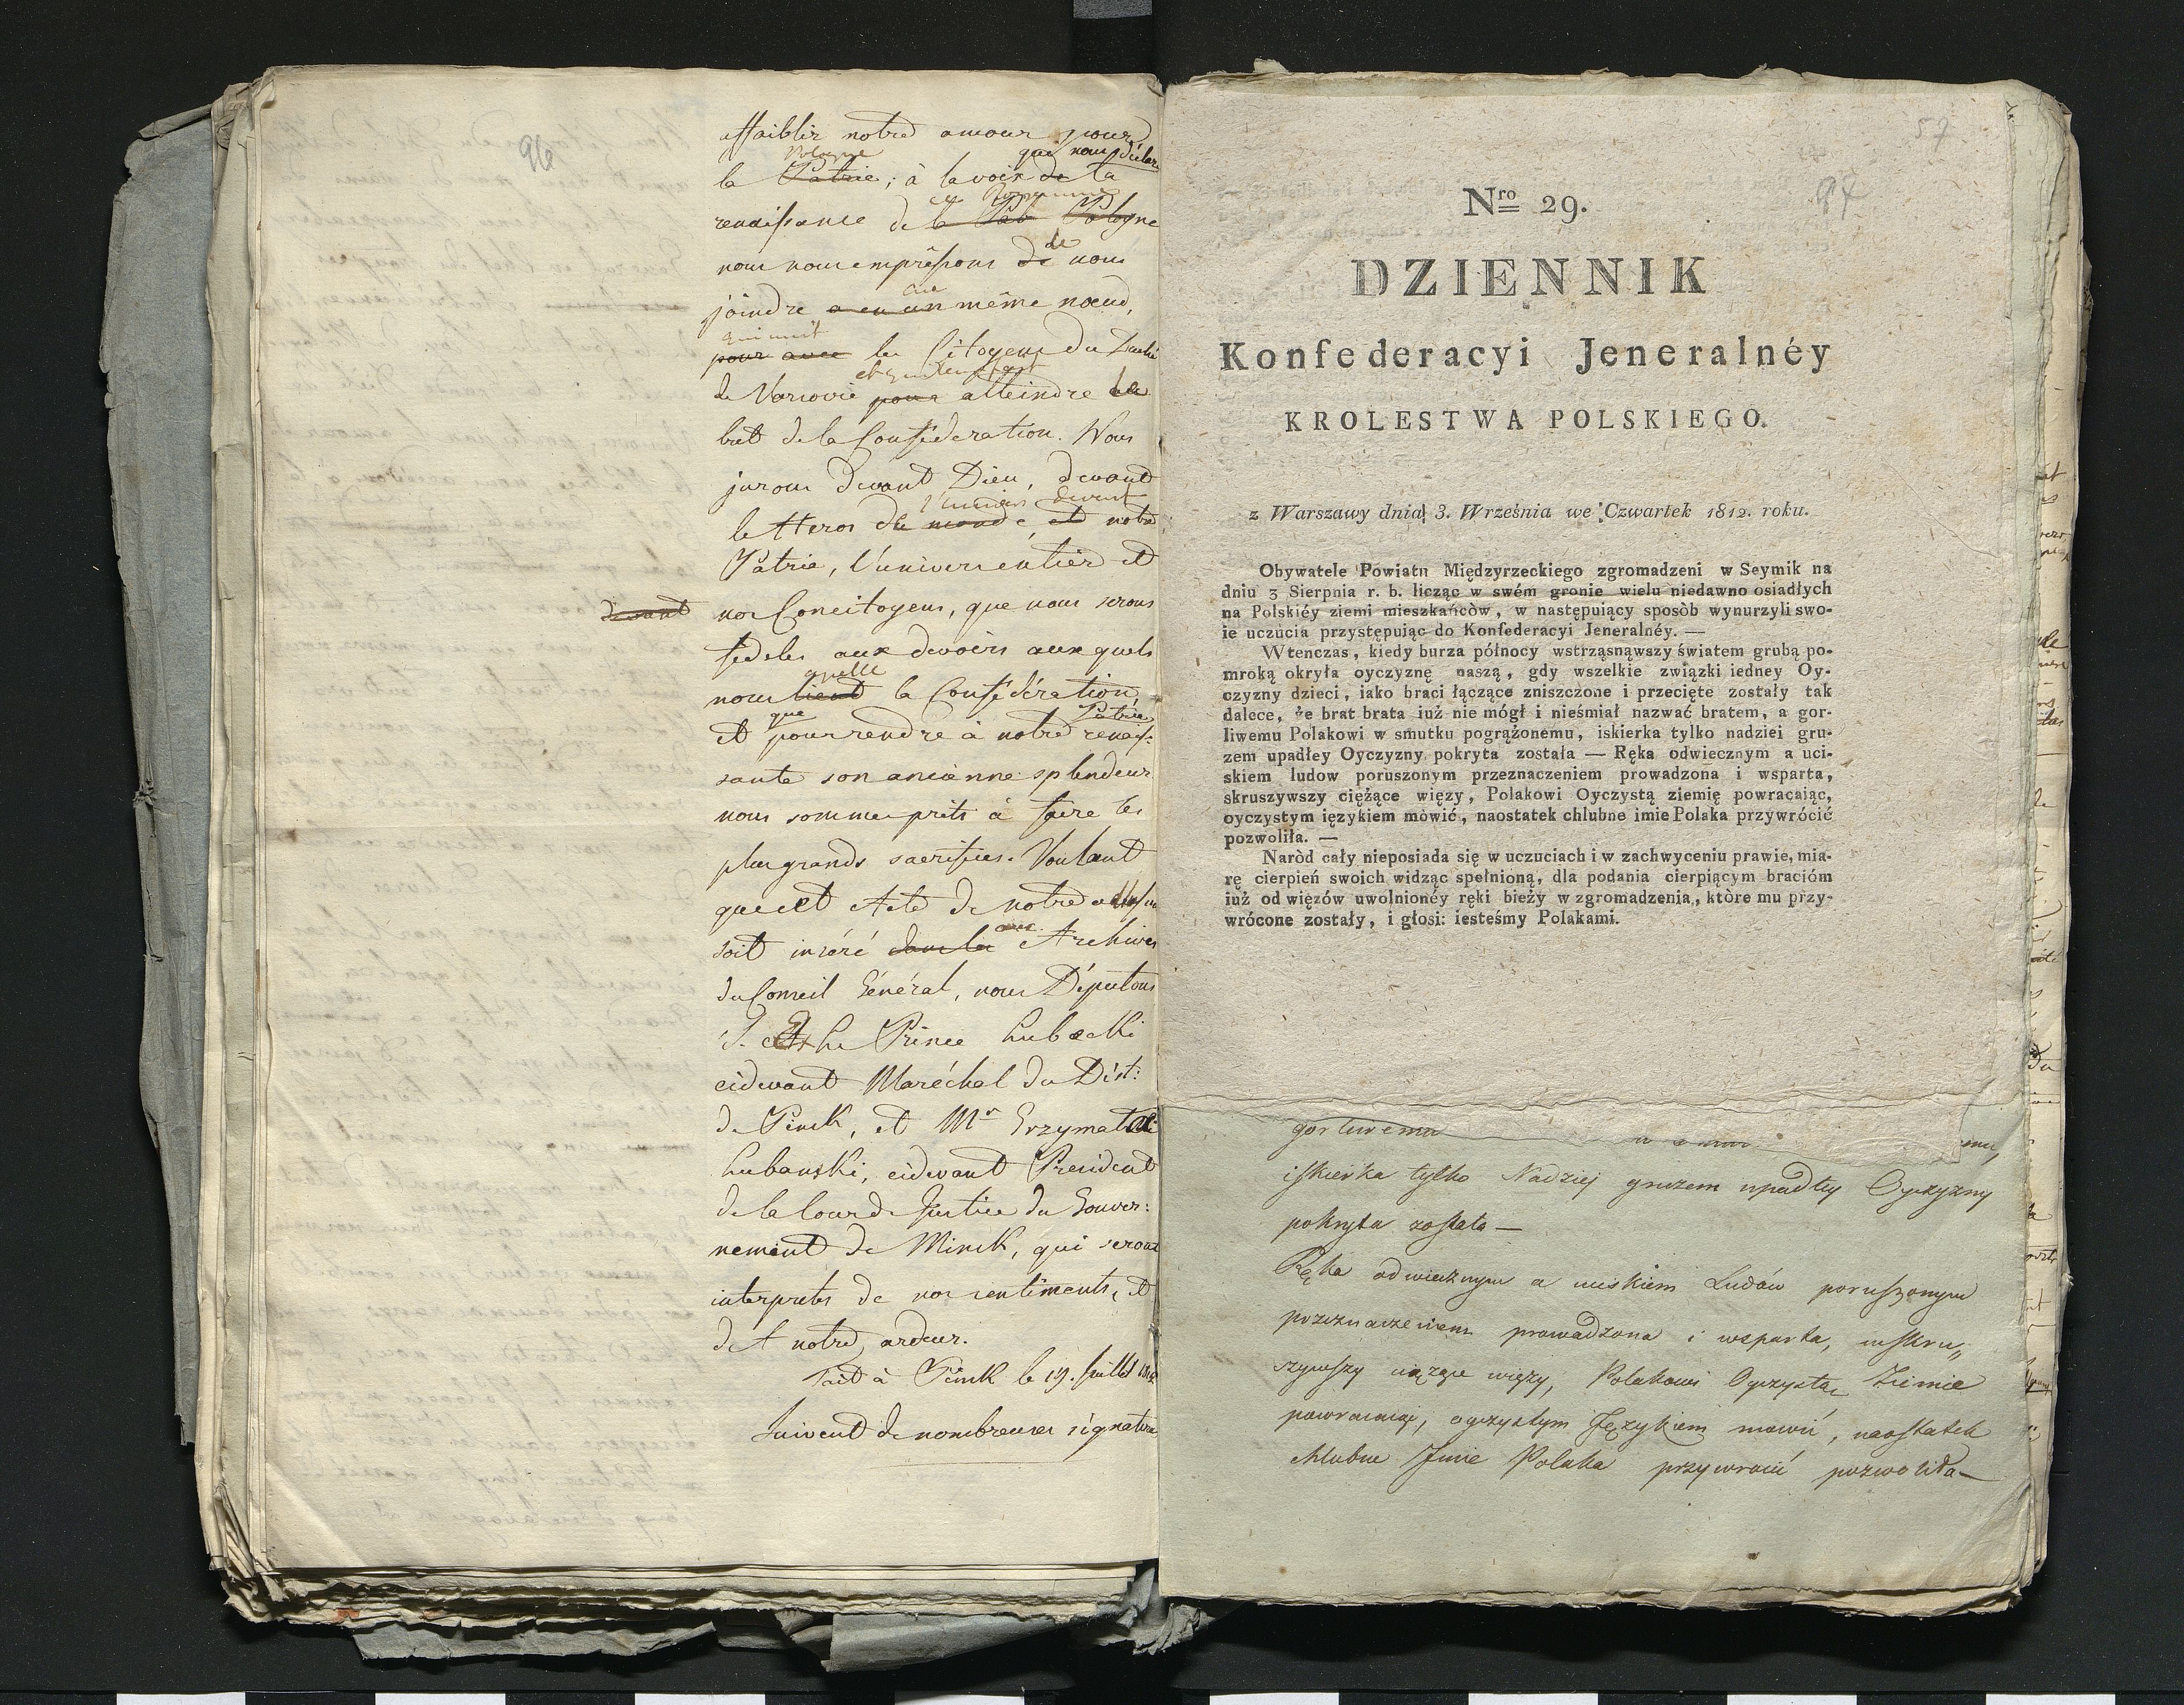 96
affaiblir notre amour pour
Pologne que nous déclare
la Patrie; à la voix de la
ce Royaume
renaissance de la Pat Pologne
de
nous nous empressons de nous
au
joindre a en un même nœud,
qui unit
pour avec les Citoyens du Duché
de Varsovie pour atteindre le
but de la Confédération. Nous
jurons devant Dieu, devant
l'univers devant
le Heros du monde, et notre
Patrie, l'univers entier et
devant nos Concitoyens, que nous serons
fideles aux devoirs aux quels
apelle
nous tient la Confédération,
que Patrie
et pour rendre à notre renais-
sante son ancienne splendeur
nous sommes prêts à faire les
plus grands sacrifices. Voulant
que cet Acte de notre
aux
soit inséré dans les Archives
du Conseil Général, nous Députons
Le Prince Lubecki
cidevant Maréchal du Dist:
de Pinsk, et Mr Grzymala
Lubanski, cidevant President
de la Cour de Justice du Gouver:
nement de Minsk, qui seront
interpretes de nos sentiments, et
de notre ardeur.
Fait à Pinsk le 19. Juillet 1812
Suivent de nombreuses signatures
57
97
Nro 29.
DZIENNIK
Konfederacyi Jeneralnéy
KROLESTWA POLSKIEGO.
z Warszawy dnia 3. Września we Czwartek 1812. roku.
Obywatele Powiatu Międzyrzeckiego zgromadzeni w Seymik na
dniu 3 Sierpnia r. b. licząc w swém gronie wielu niedawno osiadłych
na Polskiéy ziemi mieszkańcòw, w następuiący sposòb wynurzyli swo-
ie uczucia przystępuiąc do Konfederacyi Jeneralnéy. —
Wtenczas, kiedy burza pòłnocy wstrząsnąwszy światem grubą po-
mroką okryła oyczyznę naszą, gdy wszelkie związki iedney Oy-
czyzny dzieci, iako braci łączące zniszczone i przecięte zostały tak
dalece, że brat brata iuż nie mógł i nieśmiał nazwać bratem, a gor-
liwemu Polakowi w smutku pogrążonemu, iskierka tylko nadziei gru-
zem upadłey Oyczyzny pokryta została — Ręka odwiecznym a uci-
skiem ludow poruszonym przeznaczeniem prowadzona i wsparta,
skruszywszy ciężące więzy, Polakowi Oyczystą ziemię powracaiąc,
oyczystym ięzykiem mòwić, naostatek chlubne imie Polaka przywrócić
pozwoliła. —
Naròd cały nieposiada się w uczuciach i w zachwyceniu prawie, mia-
rę cierpień swoich widząc spełnioną, dla podania cierpiącym bracióm
iuż od więzòw uwolnionéy ręki bieży w zgromadzenia, ktòre mu przy-
wrócone zostały, i głosi: iesteśmy Polakami.
gorliwemu
iskierka tylko Nadziej gruzem upadłey Oyczyzny
pokryta została —
Ręka odwiecznym a uciskiem Ludów poruszonym
przeznaczeniem prowadzona i wsparta, uskru„
szywszy ciążące więzy, Polakowi Oyczystą Ziemie
powracaiąc, oyczystym Językiem mowić, naostatek
chlubne Jmie Polaka przywrocić pozwoliła —